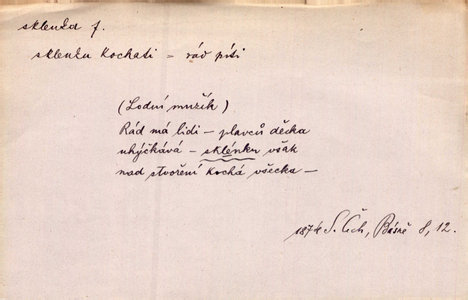 sklenka f.
sklenku kochati = rád píti
(Lodní muzik)
Rád má lidi – plavců děcka
uhýčkává – sklénku však
nad stvoření kochá všecka –
1874 S. Čech, Básně 8, 12.